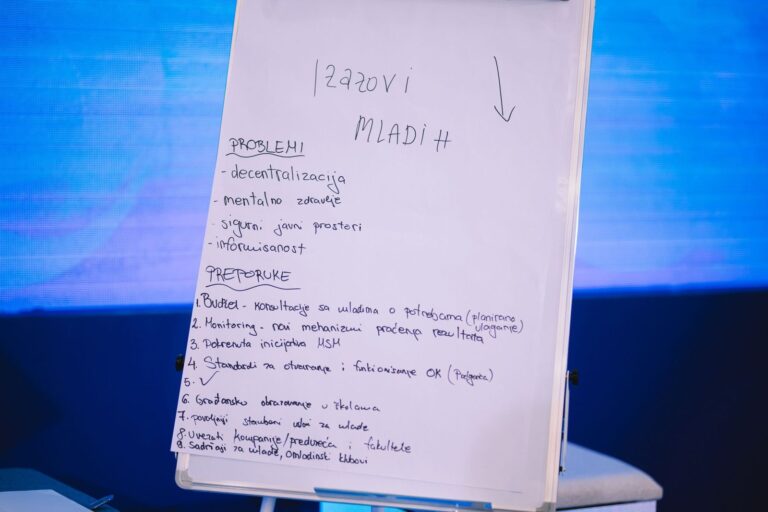 Izazovi
MLADIH
PROBLEMI
- decentralizacija
- mentalno zdravlje
- sigurni javni prostori
- informisanost
PREPORUKE
1. Budžet - konsultacije sa mladima o potrebama (planirano ulaganje)
2. Monitoring - novi mehanizmi praćenja rezultata
3. Pokrenuta inicijativa MSM
4. Standardi za otvaranje i funkcionisanje OK (Podgorica)
5. ✓
6. Građansko obrazovanje u školama
7. povoljniji stambeni uslovi za mlade
8. Uvezati kompanije/preduzeća i fakultete
9. Sadržaji za mlade, omladinski klubovi